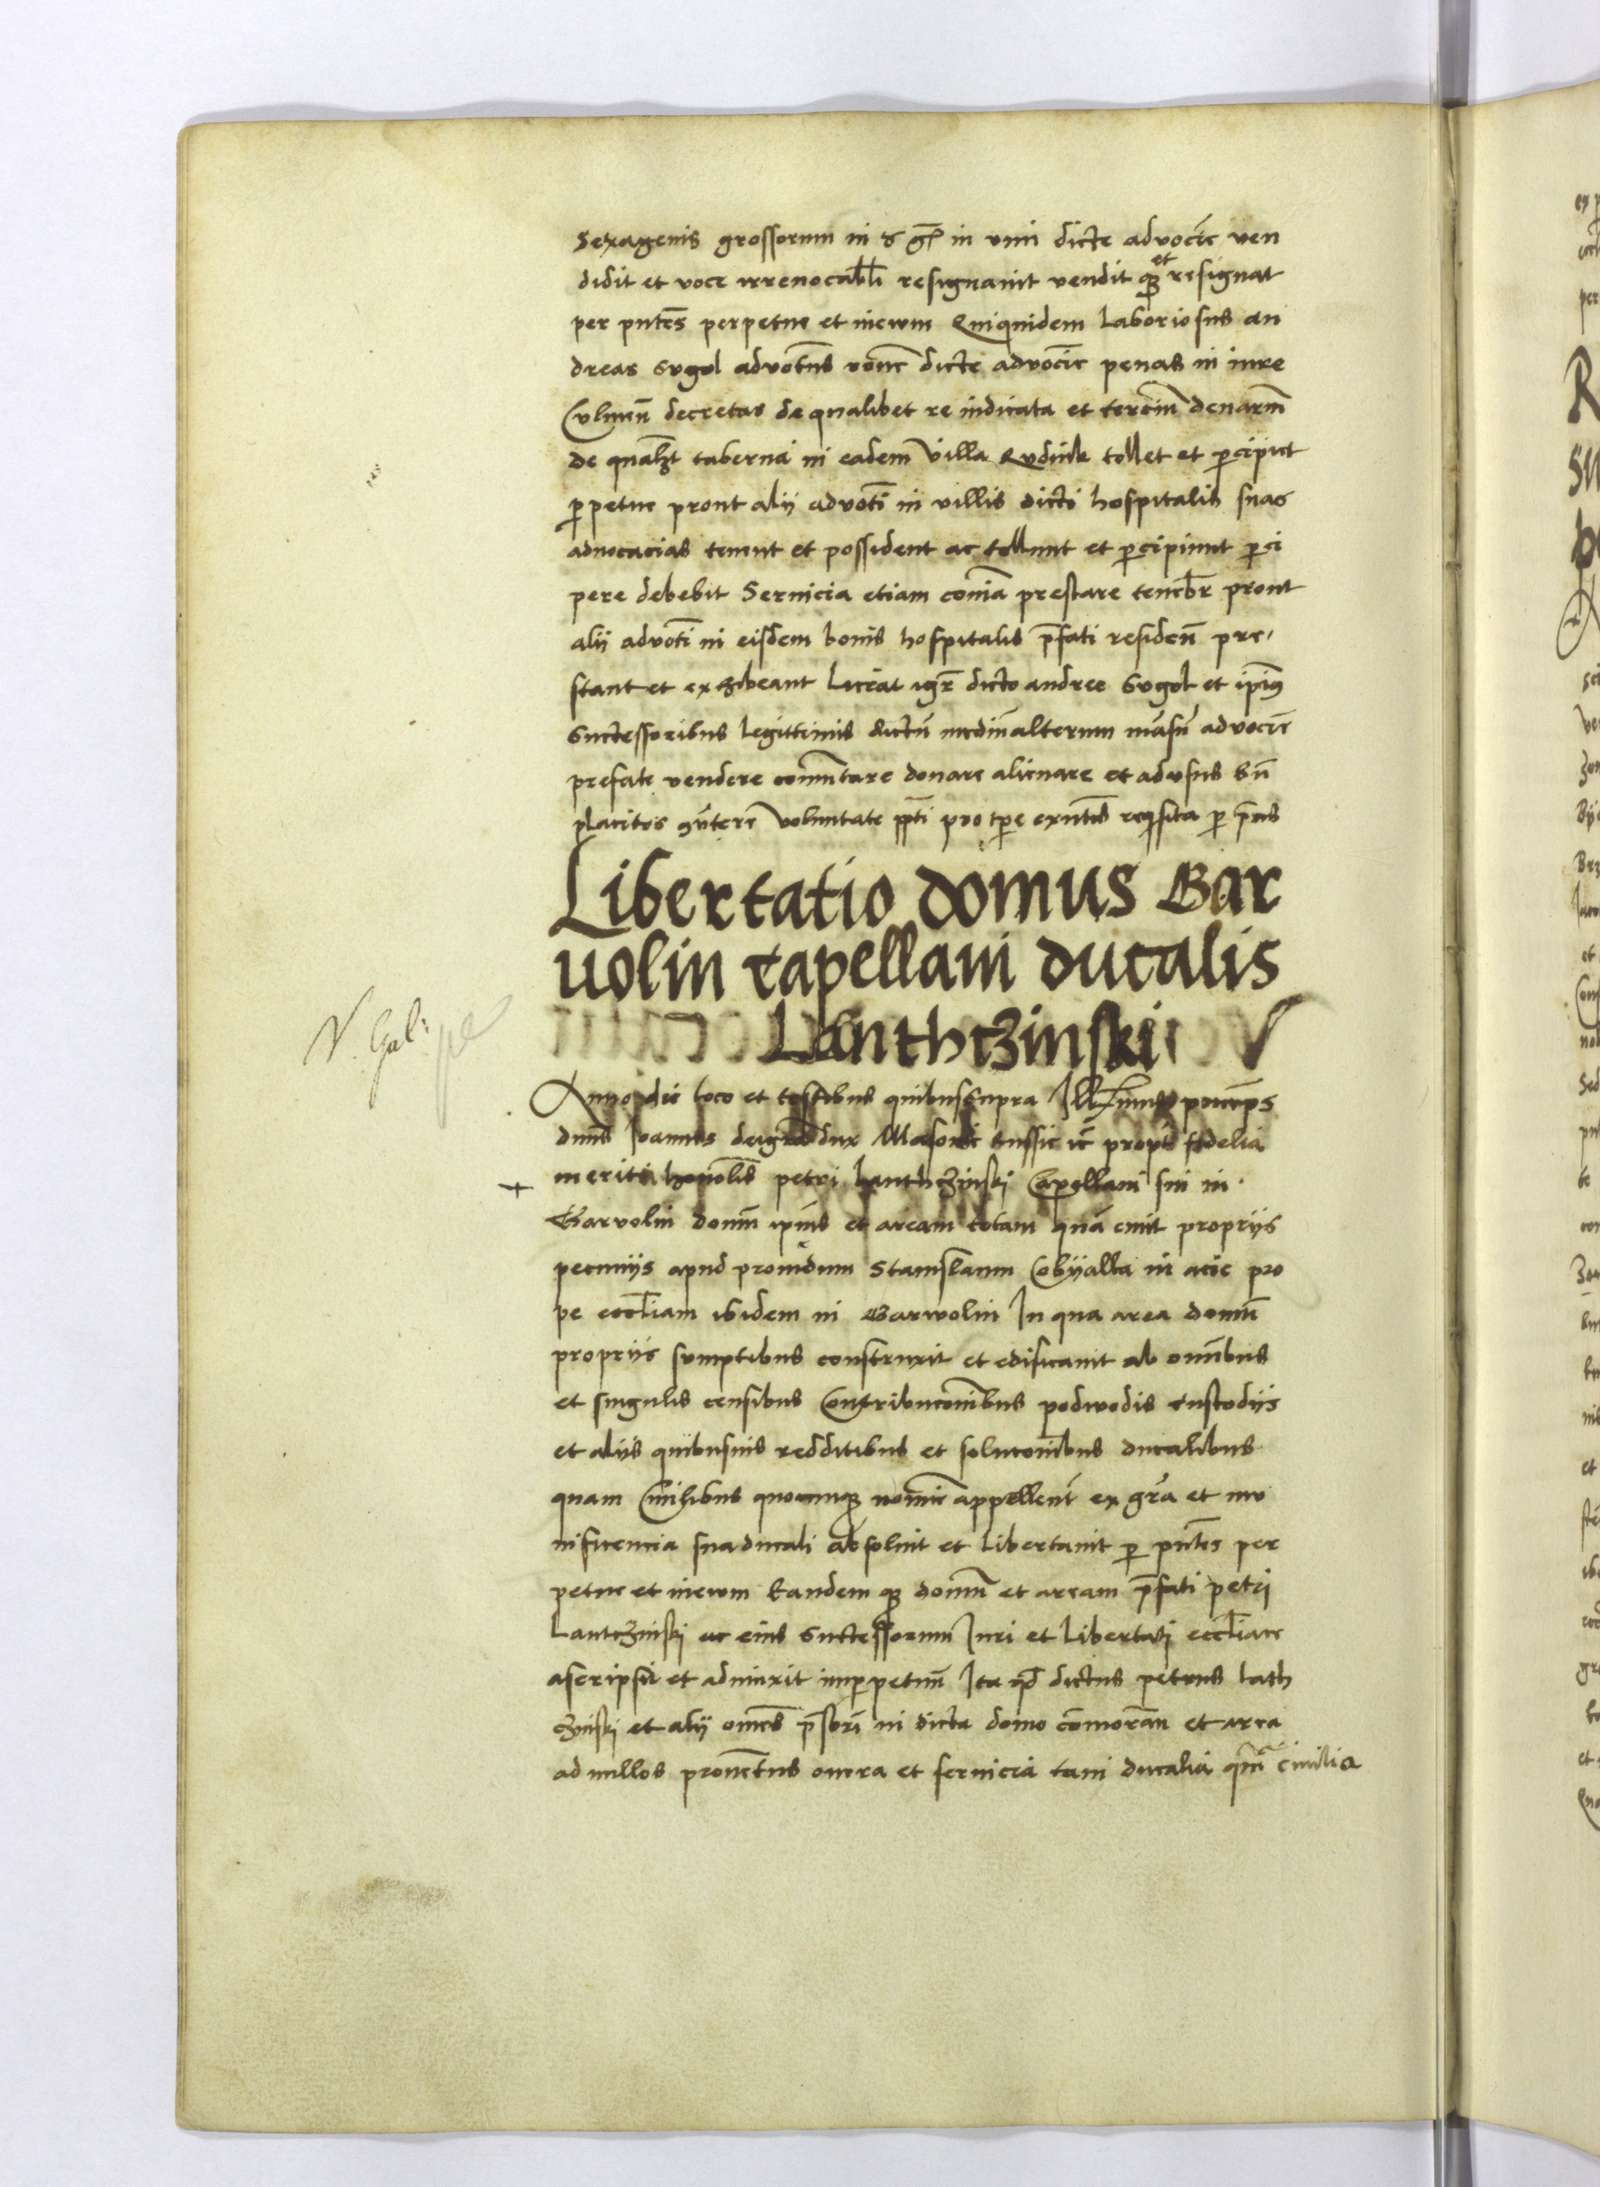 Sexagenis grossorum in & in vim dicte advocie ven
didit et voce irrevocabli resignavit vendit q3 et resignat
per pntes perpetue et inewm Quiquidem laboriosus an
dreas Gvgol advotus dicte advocie penas in iure
Culmen decretas de qualibet re iudicata et terciu denarm
de qualzt taberna in eadem villa Rudnik tollet et pcipiet
ppetue prout alij advoti in villis dicti hospitalis suas
advocacias tenent et possident ac tollunt et pcipiunt pci
pere debebit Servicia etiam conia prestare tenebr prout
alij advoti in eisdem bonis hospitalis pfati residen pre
stant et exhibeant Liceat igr dicto andree Gvgol et ipius
Successoribus legittimis dictu mediualterum mansu advocie
prefate vendere comutare donare alienare et adusus bn
placitos 9vtere voluntate ppti pro tpe exntis reqsita p pntes
Libertatio domus Gar
volin capellani ducalis
Lanthczinski
V. Gal:
Anno die loco et testibus quibus supra Illmus princeps
dnus Ioannes dei gra dux Masovie Russie ic propt fidelia
merita honolis petri Lanthczinski Capellani sui in
Garvolin domu ipius et aream totam qua emit proprijs
pecunijs apud providum Stanislaum Cobijalka in acie pro
pe eccliam ibidem in Garwolin In qua area domu
proprijs sumptibus construxit et edificavit ab omibus
et singulis censibus Contribucoibus podwodis custodijs
et alijs quibusvis redditibus et solucoibus ducalibus
quam Civilibus quocunq3 nomie appellent ex gra et mu
nificencia sua ducali absolvit et libertavit p pntes per
petue et inewm Eandem q3 domu et aream pfati petri
Lantczinski ac eius Successorum Iuri et libertati ecclie
ascripsit et adiunxit inppetuu Ita qd dictus petrus Lath
czinski et alij omes pstri in dicta domo comoran et area
ad nullos proventus onera et servicia tam ducalia qm civilia